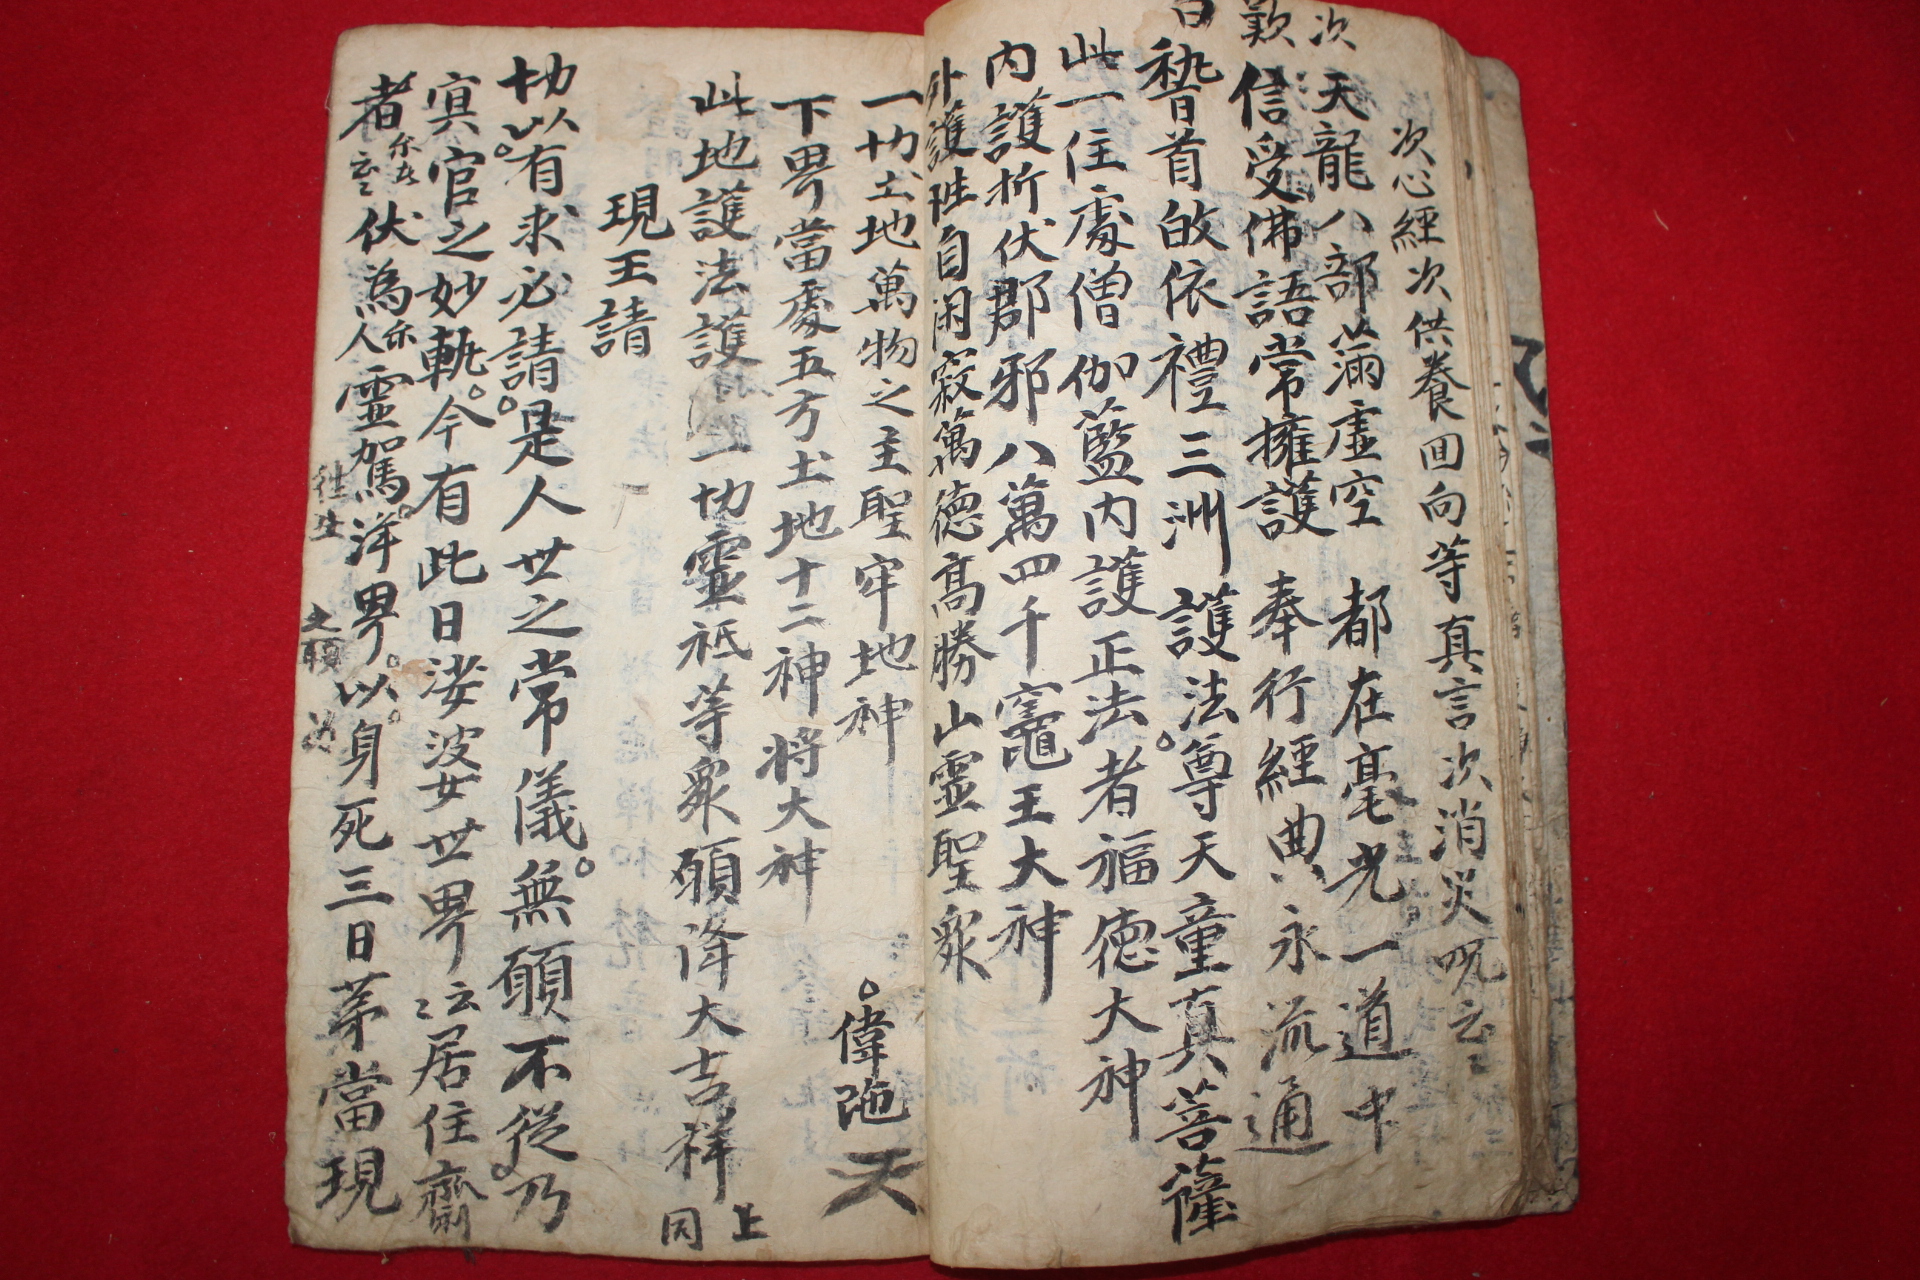 次心經次供養回向等真言次消災呪云〻
次 天龍八部滿虛空 都在毫光一道中
歎 信受佛語常擁護 奉行經典永流通
白 稽首敀依禮三洲護法尊天童真菩薩
此一住處僧伽藍內護正法者福德大神
內護折伏郡邪八萬四千竈王大神
外護性自閑寂萬德高勝山靈聖衆
一切土地萬物之主聖牢地神 偉陁天
下界當處五方土地十二神將大神
此地護法護 一切靈祗等衆願降大吉祥 上同
現王請
切以有求必請是人世之常儀無願不從乃
冥官之妙軌今有此日娑婆世界云〻居住齋
者 伏爲 人 靈駕 洋界以身死三日茅當現
往生
之願